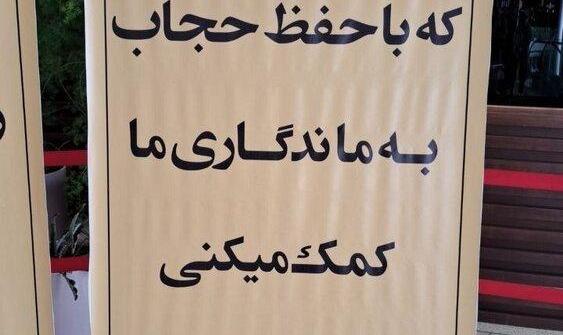 که با حفظ حجاب
به ماندگاری ما
کمک میکنی